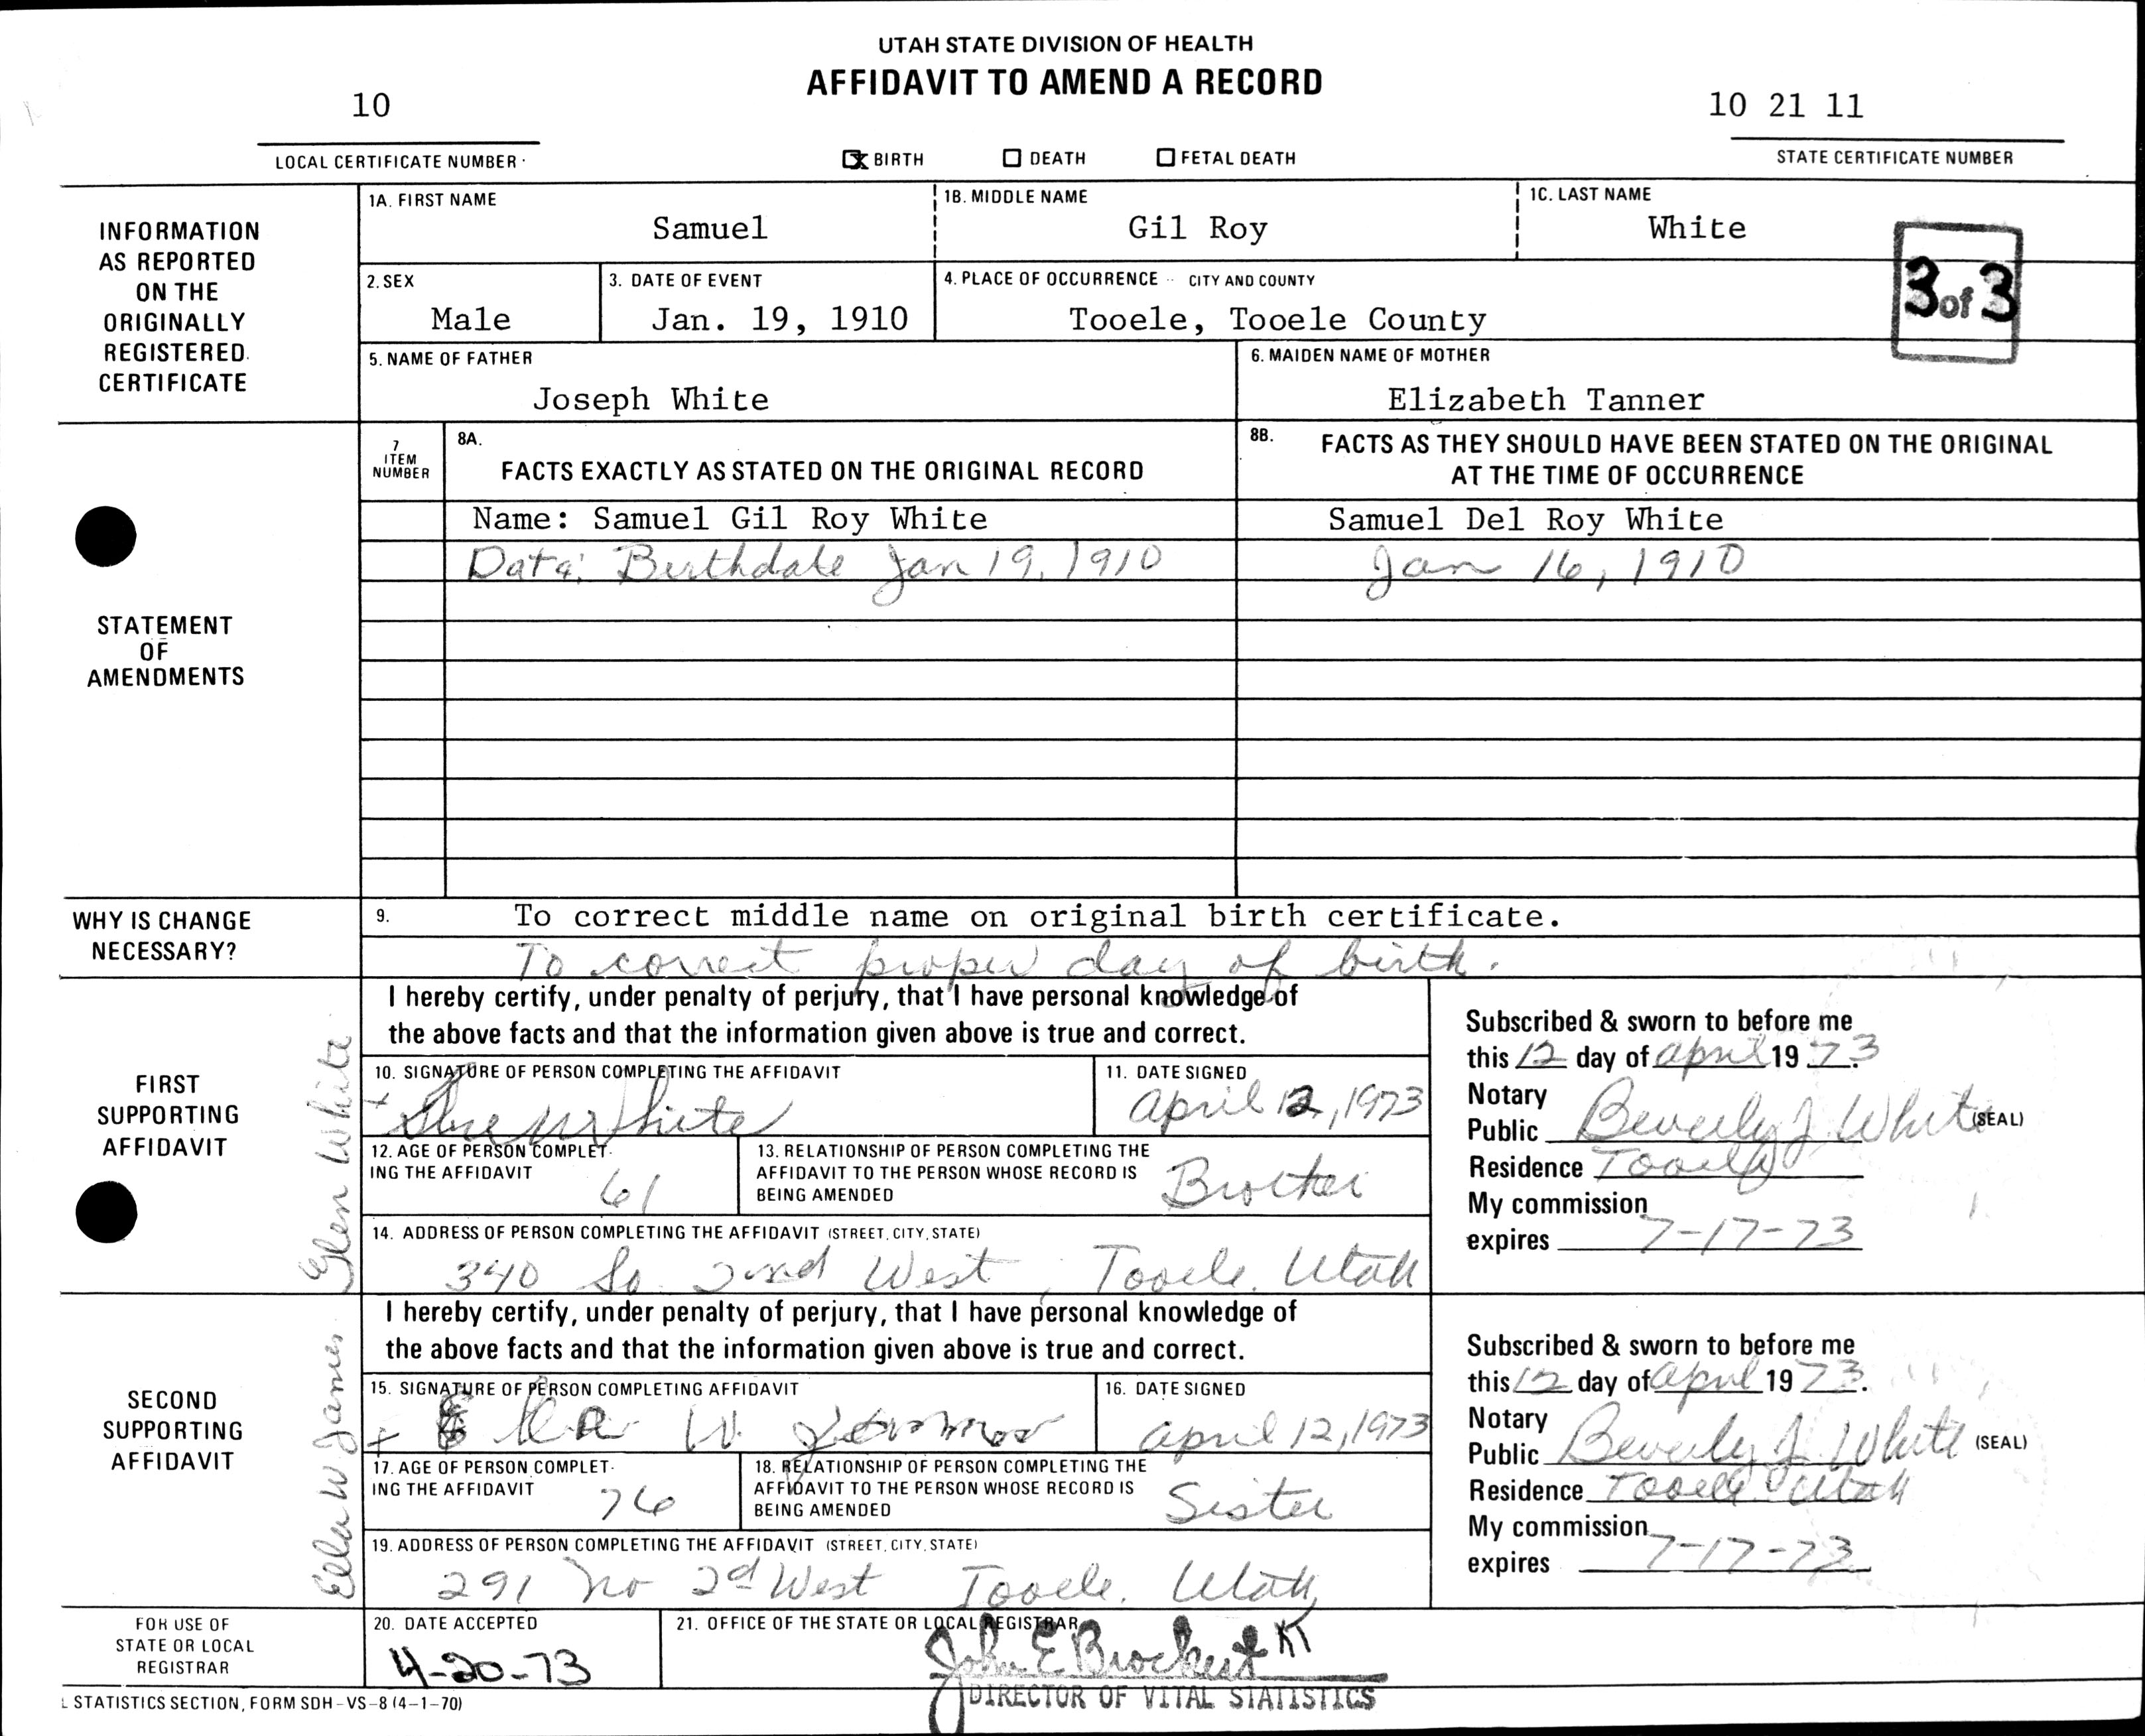 UTAH STATE DIVISION OF HEALTH
AFFIDAVIT TO AMEND A RECORD
10
10 21 11
LOCAL CERTIFICATE NUMBER
☒ BIRTH ☐ DEATH ☐ FETAL DEATH
STATE CERTIFICATE NUMBER
INFORMATION
AS REPORTED
ON THE
ORIGINALLY
REGISTERED
CERTIFICATE
1A. FIRST NAME
Samuel
1B. MIDDLE NAME
Gil Roy
1C. LAST NAME
White
3 of 3
2. SEX
Male
3. DATE OF EVENT
Jan. 19, 1910
4. PLACE OF OCCURRENCE -- CITY AND COUNTY
Tooele, Tooele County
5. NAME OF FATHER
Joseph White
6. MAIDEN NAME OF MOTHER
Elizabeth Tanner
STATEMENT
OF
AMENDMENTS
7
ITEM
NUMBER
8A.
FACTS EXACTLY AS STATED ON THE ORIGINAL RECORD
8B. FACTS AS THEY SHOULD HAVE BEEN STATED ON THE ORIGINAL
AT THE TIME OF OCCURRENCE
Name: Samuel Gil Roy White
Samuel Del Roy White
Data: Birthdate Jan 19, 1910
Jan 16, 1910
WHY IS CHANGE
NECESSARY?
9. To correct middle name on original birth certificate.
To correct proper day of birth.
FIRST
SUPPORTING
AFFIDAVIT
Glen White
I hereby certify, under penalty of perjury, that I have personal knowledge of
the above facts and that the information given above is true and correct.
10. SIGNATURE OF PERSON COMPLETING THE AFFIDAVIT
White
11. DATE SIGNED
April 12, 1973
12. AGE OF PERSON COMPLET-
ING THE AFFIDAVIT
61
13. RELATIONSHIP OF PERSON COMPLETING THE
AFFIDAVIT TO THE PERSON WHOSE RECORD IS
BEING AMENDED
Brother
14. ADDRESS OF PERSON COMPLETING THE AFFIDAVIT (STREET, CITY, STATE)
340 So 2nd West, Tooele, Utah
Subscribed & sworn to before me
this 12 day of April 19 73.
Notary
Public Beverly J White (SEAL)
Residence Tooele
My commission
expires 7-17-73
SECOND
SUPPORTING
AFFIDAVIT
Ella W
I hereby certify, under penalty of perjury, that I have personal knowledge of
the above facts and that the information given above is true and correct.
15. SIGNATURE OF PERSON COMPLETING AFFIDAVIT
+ Ella W.
16. DATE SIGNED
April 12, 1973
17. AGE OF PERSON COMPLET-
ING THE AFFIDAVIT
76
18. RELATIONSHIP OF PERSON COMPLETING THE
AFFIDAVIT TO THE PERSON WHOSE RECORD IS
BEING AMENDED
Sister
19. ADDRESS OF PERSON COMPLETING THE AFFIDAVIT (STREET, CITY, STATE)
291 No 2d West Tooele, Utah
Subscribed & sworn to before me
this 12 day of April 19 73.
Notary
Public Beverly J White (SEAL)
Residence Tooele Utah
My commission
expires 7-17-73
FOR USE OF
STATE OR LOCAL
REGISTRAR
20. DATE ACCEPTED
4-20-73
21. OFFICE OF THE STATE OR LOCAL REGISTRAR
John E Brockert
DIRECTOR OF VITAL STATISTICS
L STATISTICS SECTION, FORM SDH-VS-8 (4-1-70)